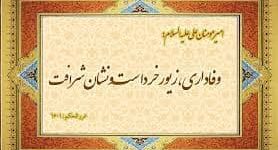 امیرمومنان علی علیه السلام:
وفاداری، زیور خرد است و نشان شرافت